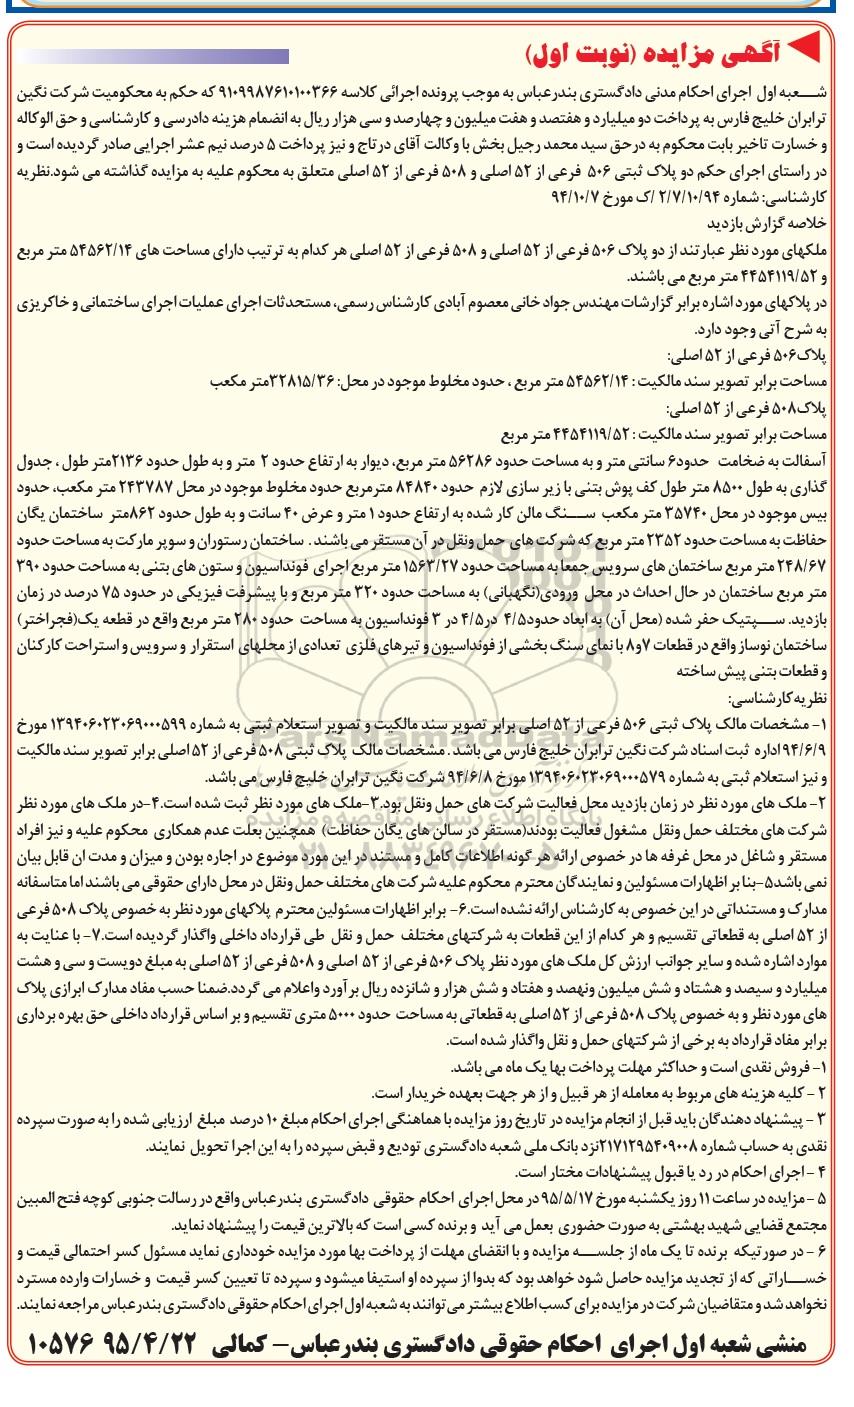 آگهی مزایده (نوبت اول)
شـــعبه اول اجرای احکام مدنی دادگستری بندرعباس به موجب پرونده اجرائی کلاسه ۹۱۰۹۹۸۷۶۱۰۱۰۰۳۶۶ که حکم به محکومیت شرکت نگین
ترابران خلیج فارس به پرداخت دو میلیارد و هفتصد و هفت میلیون و چهارصد و سی هزار ریال به انضمام هزینه دادرسی و کارشناسی و حق الوکاله
و خسارت تاخیر بابت محکوم به درحق سید محمد رجیل بخش با وکالت آقای درتاج و نیز پرداخت ۵ درصد نیم عشر اجرایی صادر گردیده است و
در راستای اجرای حکم دو پلاک ثبتی ۵۰۶ فرعی از ۵۲ اصلی و ۵۰۸ فرعی از ۵۲ اصلی متعلق به محکوم علیه به مزایده گذاشته می شود.نظریه
کارشناسی: شماره ۲/۷/۱۰/۹۴ /ک مورخ ۹۴/۱۰/۷
خلاصه گزارش بازدید
ملکهای مورد نظر عبارتند از دو پلاک ۵۰۶ فرعی از ۵۲ اصلی و ۵۰۸ فرعی از ۵۲ اصلی هر کدام به ترتیب دارای مساحت های ۵۴۵۶۲/۱۴ متر مربع
و ۴۴۵۴۱۱۹/۵۲ متر مربع می باشند.
در پلاکهای مورد اشاره برابر گزارشات مهندس جواد خانی معصوم آبادی کارشناس رسمی، مستحدثات اجرای عملیات اجرای ساختمانی و خاکریزی
به شرح آتی وجود دارد.
پلاک۵۰۶ فرعی از ۵۲ اصلی:
مساحت برابر تصویر سند مالکیت : ۵۴۵۶۲/۱۴ متر مربع ، حدود مخلوط موجود در محل: ۳۲۸۱۵/۳۶متر مکعب
پلاک۵۰۸ فرعی از ۵۲ اصلی:
مساحت برابر تصویر سند مالکیت : ۴۴۵۴۱۱۹/۵۲ متر مربع
آسفالت به ضخامت حدود۶ سانتی متر و به مساحت حدود ۵۶۲۸۶ متر مربع، دیوار به ارتفاع حدود ۲ متر و به طول حدود ۲۱۳۶متر طول ، جدول
گذاری به طول ۸۵۰۰ متر طول کف پوش بتنی با زیر سازی لازم حدود ۸۴۸۴۰ مترمربع حدود مخلوط موجود در محل ۲۴۳۷۸۷ متر مکعب، حدود
بیس موجود در محل ۳۵۷۴۰ متر مکعب ســـنگ مالن کار شده به ارتفاع حدود ۱ متر و عرض ۴۰ سانت و به طول حدود ۸۶۲متر ساختمان یگان
حفاظت به مساحت حدود ۲۳۵۲ متر مربع که شرکت های حمل ونقل در آن مستقر می باشند . ساختمان رستوران و سوپر مارکت به مساحت حدود
۲۴۸/۶۷ متر مربع ساختمان های سرویس جمعا به مساحت حدود ۱۵۶۳/۲۷ متر مربع اجرای فونداسیون و ستون های بتنی به مساحت حدود ۳۹۰
متر مربع ساختمان در حال احداث در محل ورودی(نگهبانی) به مساحت حدود ۳۲۰ متر مربع و با پیشرفت فیزیکی در حدود ۷۵ درصد در زمان
بازدید. ســـپتیک حفر شده (محل آن) به ابعاد حدود۴/۵ در۴/۵ در ۳ فونداسیون به مساحت حدود ۲۸۰ متر مربع واقع در قطعه یک(فجراختر)
ساختمان نوساز واقع در قطعات ۷و۸ با نمای سنگ بخشی از فونداسیون و تیرهای فلزی تعدادی از محلهای استقرار و سرویس و استراحت کارکنان
و قطعات بتنی پیش ساخته
نظریه کارشناسی:
۱- مشخصات مالک پلاک ثبتی ۵۰۶ فرعی از ۵۲ اصلی برابر تصویر سند مالکیت و تصویر استعلام ثبتی به شماره ۱۳۹۴۰۶۰۲۳۰۶۹۰۰۰۵۹۹ مورخ
۹۴/۶/۹ اداره ثبت اسناد شرکت نگین ترابران خلیج فارس می باشد . مشخصات مالک پلاک ثبتی ۵۰۸ فرعی از ۵۲ اصلی برابر تصویر سند مالکیت
و نیز استعلام ثبتی به شماره ۱۳۹۴۰۶۰۲۳۰۶۹۰۰۰۵۷۹ مورخ ۹۴/۶/۸ شرکت نگین ترابران خلیج فارس می باشد.
۲- ملک های مورد نظر در زمان بازدید محل فعالیت شرکت های حمل ونقل بود.۳-ملک های مورد نظر ثبت شده است.۴-در ملک های مورد نظر
شرکت های مختلف حمل ونقل مشغول فعالیت بودند(مستقر در سالن های یگان حفاظت) همچنین بعلت عدم همکاری محکوم علیه و نیز افراد
مستقر و شاغل در محل غرفه ها در خصوص ارائه هر گونه اطلاعات کامل و مستند در این مورد موضوع در اجاره بودن و میزان و مدت ان قابل بیان
نمی باشد۵-بنا بر اظهارات مسئولین و نمایندگان محترم محکوم علیه شرکت های مختلف حمل ونقل در محل دارای حقوقی می باشند اما متاسفانه
مدارک و مستنداتی در این خصوص به کارشناس ارائه نشده است.۶- برابر اظهارات مسئولین محترم پلاکهای مورد نظر به خصوص پلاک ۵۰۸ فرعی
از ۵۲ اصلی به قطعاتی تقسیم و هر کدام از این قطعات به شرکتهای مختلف حمل و نقل طی قرارداد داخلی واگذار گردیده است.۷- با عنایت به
موارد اشاره شده و سایر جوانب ارزش کل ملک های مورد نظر پلاک ۵۰۶ فرعی از ۵۲ اصلی و ۵۰۸ فرعی از ۵۲ اصلی به مبلغ دویست و سی و هشت
میلیارد و سیصد و هشتاد و شش میلیون ونهصد و هفتاد و شش هزار و شانزده ریال برآورد واعلام می گردد.ضمنا حسب مفاد مدارک ابرازی پلاک
های مورد نظر و به خصوص پلاک ۵۰۸ فرعی از ۵۲ اصلی به قطعاتی به مساحت حدود ۵۰۰۰ متری تقسیم و بر اساس قرارداد داخلی حق بهره برداری
برابر مفاد قرارداد به برخی از شرکتهای حمل و نقل واگذار شده است.
۱- فروش نقدی است و حداکثر مهلت پرداخت بها یک ماه می باشد.
۲ - کلیه هزینه های مربوط به معامله از هر قبیل و از هر جهت بعهده خریدار است.
۳ - پیشنهاد دهندگان باید قبل از انجام مزایده در تاریخ روز مزایده با هماهنگی اجرای احکام مبلغ ۱۰ درصد مبلغ ارزیابی شده را به صورت سپرده
نقدی به حساب شماره ۲۱۷۱۲۹۵۴۰۹۰۰۸نزد بانک ملی شعبه دادگستری تودیع و قبض سپرده را به این اجرا تحویل نمایند.
۴ - اجرای احکام در رد یا قبول پیشنهادات مختار است.
۵ - مزایده در ساعت ۱۱ روز یکشنبه مورخ ۹۵/۵/۱۷ در محل اجرای احکام حقوقی دادگستری بندرعباس واقع در رسالت جنوبی کوچه فتح المبین
مجتمع قضایی شهید بهشتی به صورت حضوری بعمل می آید و برنده کسی است که بالاترین قیمت را پیشنهاد نماید.
۶ - در صورتیکه برنده تا یک ماه از جلســـه مزایده و با انقضای مهلت از پرداخت بها مورد مزایده خودداری نماید مسئول کسر احتمالی قیمت و
خســـاراتی که از تجدید مزایده حاصل شود خواهد بود که بدوا از سپرده او استیفا میشود و سپرده تا تعیین کسر قیمت و خسارات وارده مسترد
نخواهد شد و متقاضیان شرکت در مزایده برای کسب اطلاع بیشتر می توانند به شعبه اول اجرای احکام حقوقی دادگستری بندرعباس مراجعه نمایند.
منشی شعبه اول اجرای احکام حقوقی دادگستری بندرعباس- کمالی ۹۵/۴/۲۲ ۱۰۵۷۶
ParsNamadData
پایگاه اطلاع رسانی مناقصه و مزایده
۰۲۱-۸۸۳۴۹۶۷۰-۵